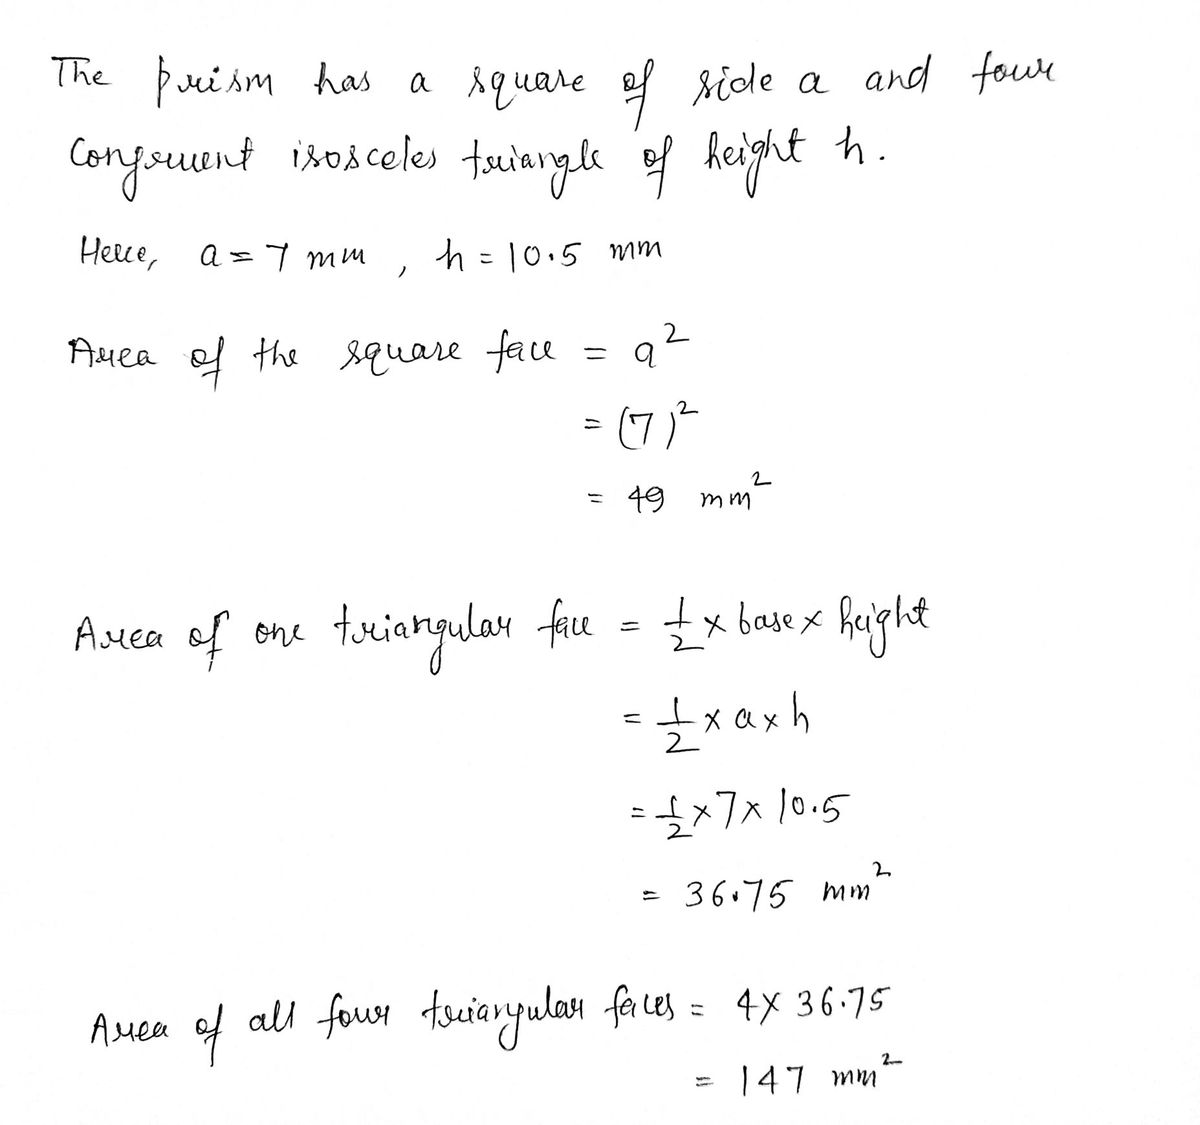 The prism has a square of side a and four
Congruent isosceles triangle of height h.
Here, a = 7 mm , h = 10.5 mm
Area of the square face = a²
= (7)²
= 49 mm²
Area of one triangular face = 1/2 × base × height
= 1/2 × a × h
= 1/2 × 7 × 10.5
= 36.75 mm²
Area of all four triangular faces = 4 × 36.75
= 147 mm²